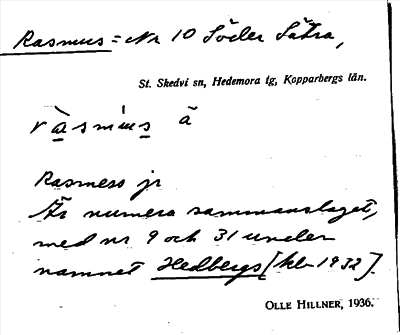 Rasmus = Nr 10 Söder Sätra,
St. Skedvi sn, Hedemora tg, Kopparbergs län.
ràsmùs ā
Rasmess jr
Är numera sammanslaget,
med nr 9 och 31 under
namnet Hedbergs [kb 1932].
OLLE HILLNER, 1936.